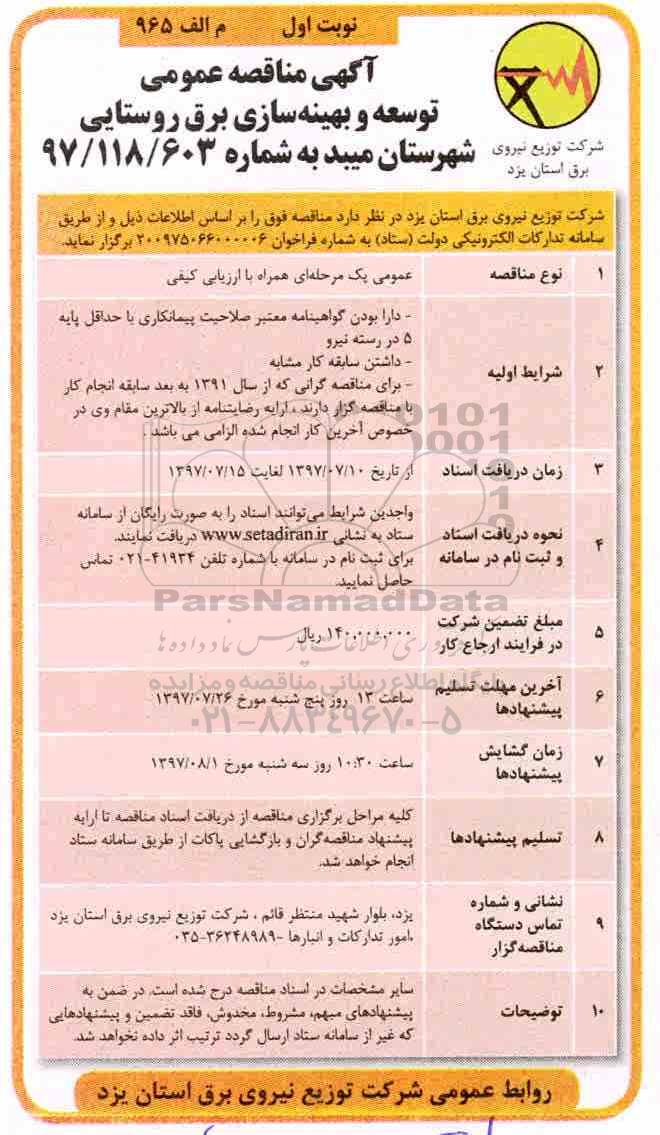 نوبت اول
م الف ۹۶۵
آگهی مناقصه عمومی
توسعه و بهینه‌سازی برق روستایی
شهرستان میبد به شماره ۹۷/۱۱۸/۶۰۳
شرکت توزیع نیروی
برق استان یزد
شرکت توزیع نیروی برق استان یزد در نظر دارد مناقصه فوق را بر اساس اطلاعات ذیل و از طریق
سامانه تدارکات الکترونیکی دولت (ستاد) به شماره فراخوان ۲۰۰۹۷۵۰۶۶۰۰۰۰۰۶ برگزار نماید.
۱
نوع مناقصه
عمومی یک مرحله‌ای همراه با ارزیابی کیفی
۲
شرایط اولیه
- دارا بودن گواهینامه معتبر صلاحیت پیمانکاری با حداقل پایه
۵ در رسته نیرو
- داشتن سابقه کار مشابه
- برای مناقصه گرانی که از سال ۱۳۹۱ به بعد سابقه انجام کار
با مناقصه گزار دارند ، ارایه رضایتنامه از بالاترین مقام وی در
خصوص آخرین کار انجام شده الزامی می باشد .
۳
زمان دریافت اسناد
از تاریخ ۱۳۹۷/۰۷/۱۰ لغایت ۱۳۹۷/۰۷/۱۵
۴
نحوه دریافت اسناد
و ثبت نام در سامانه
واجدین شرایط می‌توانند اسناد را به صورت رایگان از سامانه
ستاد به نشانی www.setadiran.ir دریافت نمایند.
برای ثبت نام در سامانه با شماره تلفن ۴۱۹۳۴-۰۲۱ تماس
حاصل نمایید.
ParsNamadData
۵
مبلغ تضمین شرکت
در فرایند ارجاع کار
۱۴۰،۰۰۰،۰۰۰ ریال
فرآوری اطلاعات پارس نماد داده ها
۶
آخرین مهلت تسلیم
پیشنهادها
ساعت ۱۳ روز پنج شنبه مورخ ۱۳۹۷/۰۷/۲۶
پایگاه اطلاع رسانی مناقصه و مزایده
۰۲۱-۸۸۳۴۹۶۷۰-۵
۷
زمان گشایش
پیشنهادها
ساعت ۱۰:۳۰ روز سه شنبه مورخ ۱۳۹۷/۰۸/۱
۸
تسلیم پیشنهادها
کلیه مراحل برگزاری مناقصه از دریافت اسناد مناقصه تا ارایه
پیشنهاد مناقصه‌گران و بازگشایی پاکات از طریق سامانه ستاد
انجام خواهد شد.
۹
نشانی و شماره
تماس دستگاه
مناقصه‌گزار
یزد، بلوار شهید منتظر قائم ، شرکت توزیع نیروی برق استان یزد
،امور تدارکات و انبارها -۳۶۲۴۸۹۸۹-۰۳۵
۱۰
توضیحات
سایر مشخصات در اسناد مناقصه درج شده است. در ضمن به
پیشنهادهای مبهم، مشروط، مخدوش، فاقد تضمین و پیشنهادهایی
که غیر از سامانه ستاد ارسال گردد ترتیب اثر داده نخواهد شد.
روابط عمومی شرکت توزیع نیروی برق استان یزد